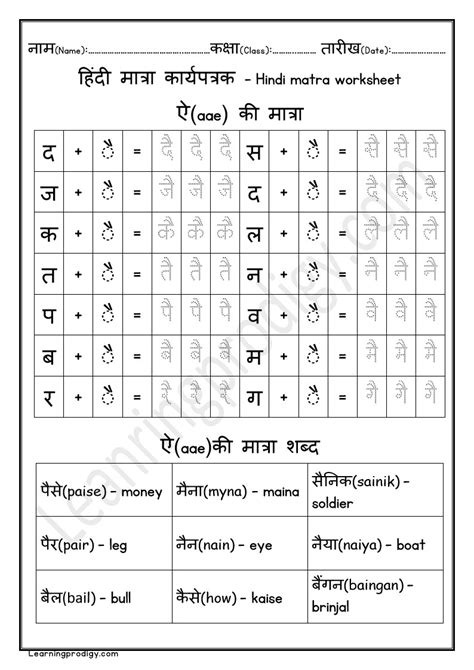 नाम(Name):........................................कक्षा(Class):.................... तारीख(Date):....................
हिंदी मात्रा कार्यपत्रक - Hindi matra worksheet
ऐ(aae) की मात्रा
द + ै = दै दै दै स + ै = सै सै सै
ज + ै = जै जै जै द + ै = दै दै दै
क + ै = कै कै कै ल + ै = लै लै लै
त + ै = तै तै तै न + ै = नै नै नै
प + ै = पै पै पै व + ै = वै वै वै
ब + ै = बै बै बै म + ै = मै मै मै
र + ै = रै रै रै ग + ै = गै गै गै
ऐ(aae)की मात्रा शब्द
पैसे(paise) - money मैना(myna) - maina सैनिक(sainik) - soldier
पैर(pair) - leg नैन(nain) - eye नैया(naiya) - boat
बैल(bail) - bull कैसे(how) - kaise बैंगन(baingan) - brinjal
Learningprodigy.com
Leanringprodigy.com